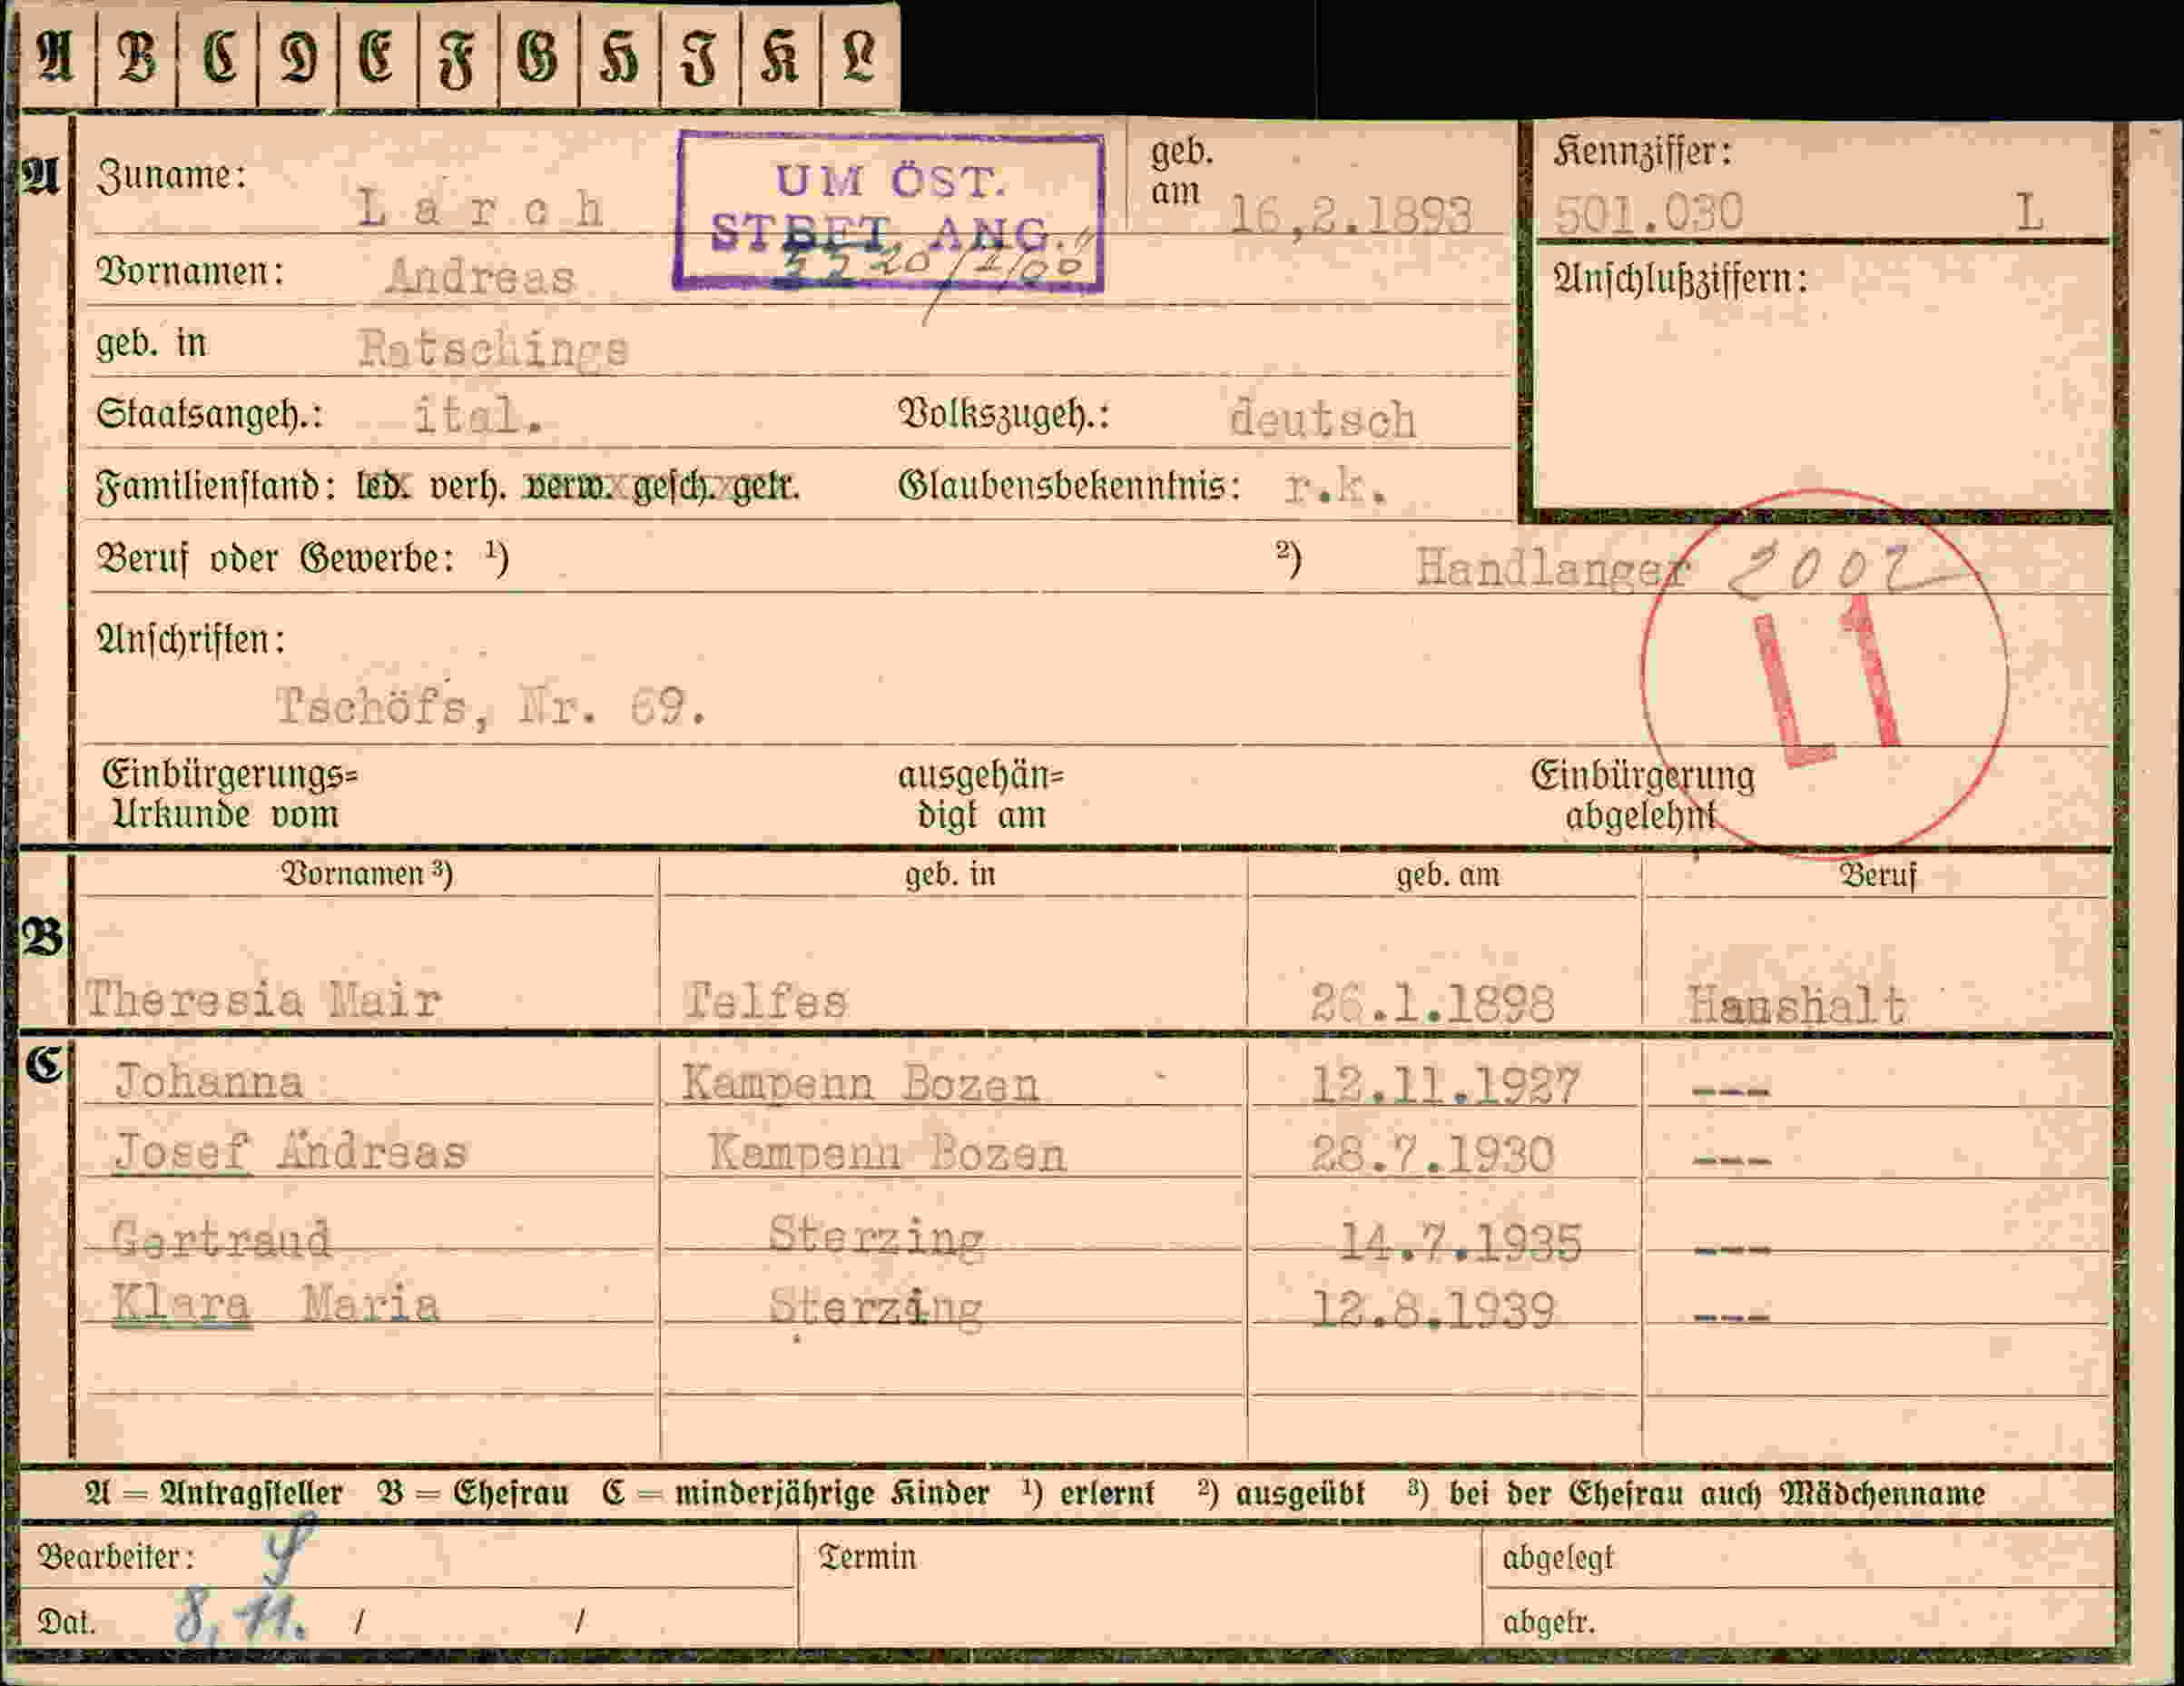 A B C D E F G H I K L
A Zuname: Larch
UM ÖST.
STBET. ANG.
geb. am 16,2.1893
Kennziffer:
501.030 L
Vornamen: Andreas
Anschlußziffern:
geb. in Ratschings
Staatsangeh.: ital. Volkszugeh.: deutsch
Familienstand: led. verh. verw. gesch. getr. Glaubensbekenntnis: r.k.
Beruf oder Gewerbe: ¹) ²) Handlanger 2002
L1
Anschriften:
Tschöfs, Nr. 69.
Einbürgerungs= ausgehän= Einbürgerung
Urkunde vom digt am abgelehnt
Vornamen ³) geb. in geb. am Beruf
B
Theresia Mair Telfes 26.1.1898 Haushalt
C Johanna Kampenn Bozen 12.11.1927 ---
Josef Andreas Kampenn Bozen 28.7.1930 ---
Gertraud Sterzing 14.7.1935 ---
Klara Maria Sterzing 12.8.1939 ---
A = Antragsteller B = Ehefrau C = minderjährige Kinder ¹) erlernt ²) ausgeübt ³) bei der Ehefrau auch Mädchenname
Bearbeiter: Termin abgelegt
Dat. 8. 11. / / abgetr.